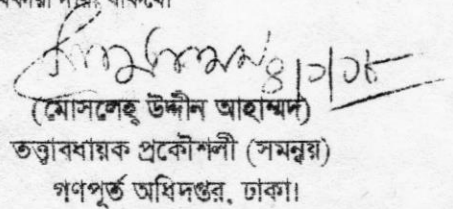 ৪/১/০৮
(মোসলেহ্ উদ্দীন আহাম্মদ)
তত্ত্বাবধায়ক প্রকৌশলী (সমন্বয়)
গণপূর্ত অধিদপ্তর, ঢাকা।